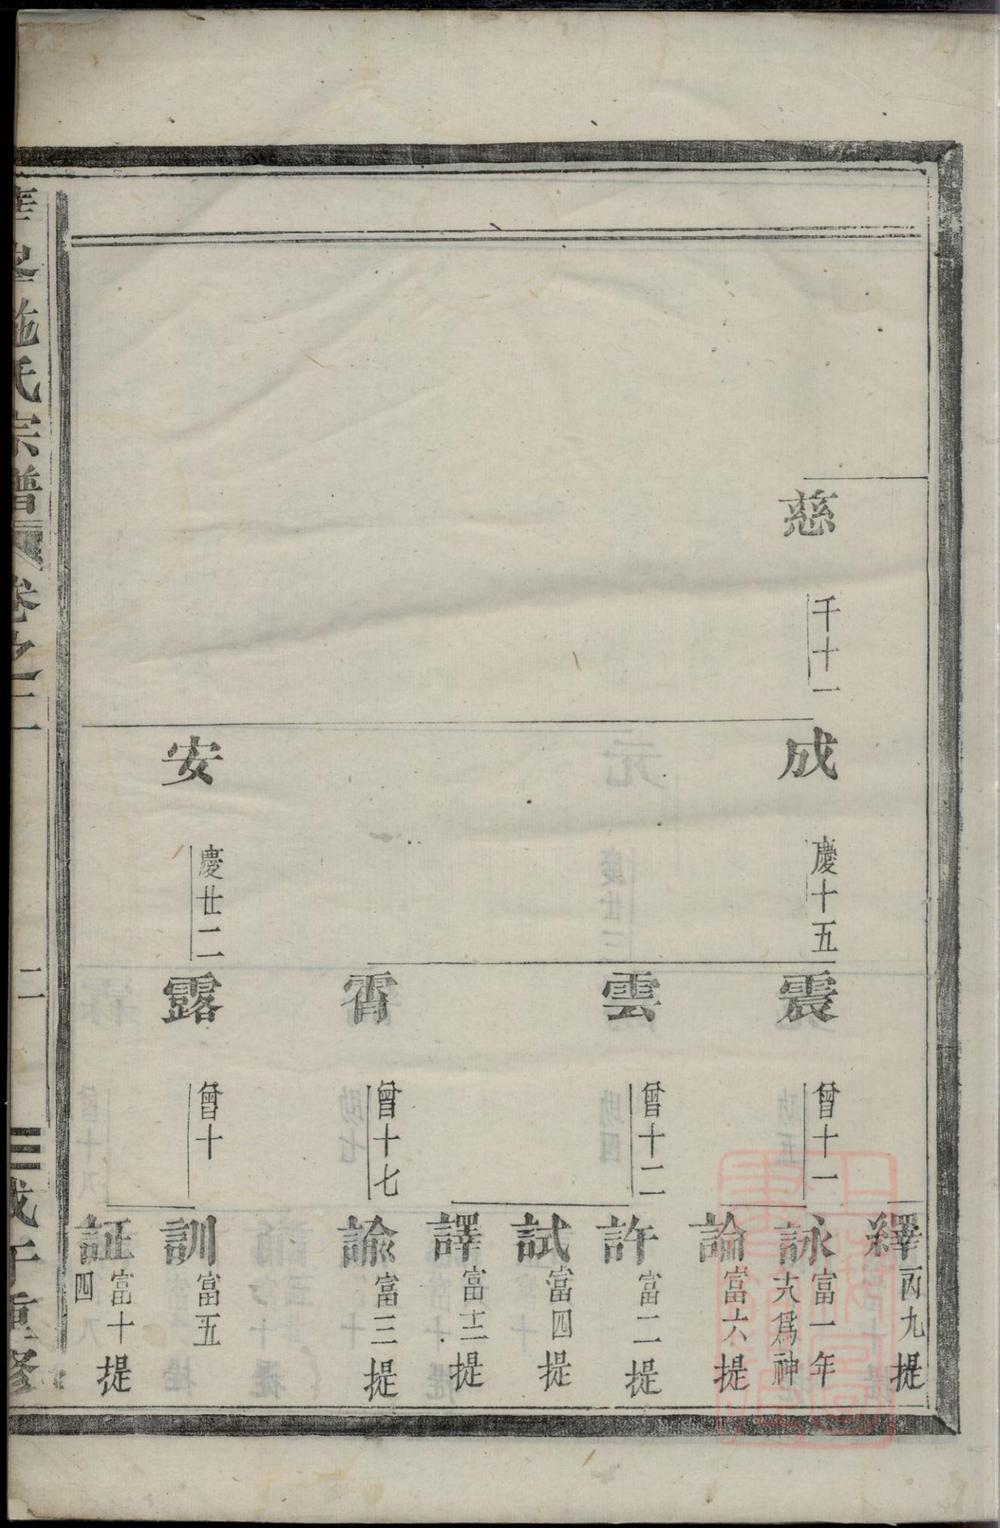 慈 千十一
成 慶十五
安 慶廿二
震 曾十一
雲 曾十二
霄 曾十七
露 曾十
釋 丙九 提
詠 富一 年
大爲神
論 富六 提
許 富二 提
試 富四 提
譯 富十二 提
諭 富三 提
訓 富五
証 富十 提
四
施氏宗譜 卷之二
二
三
重修